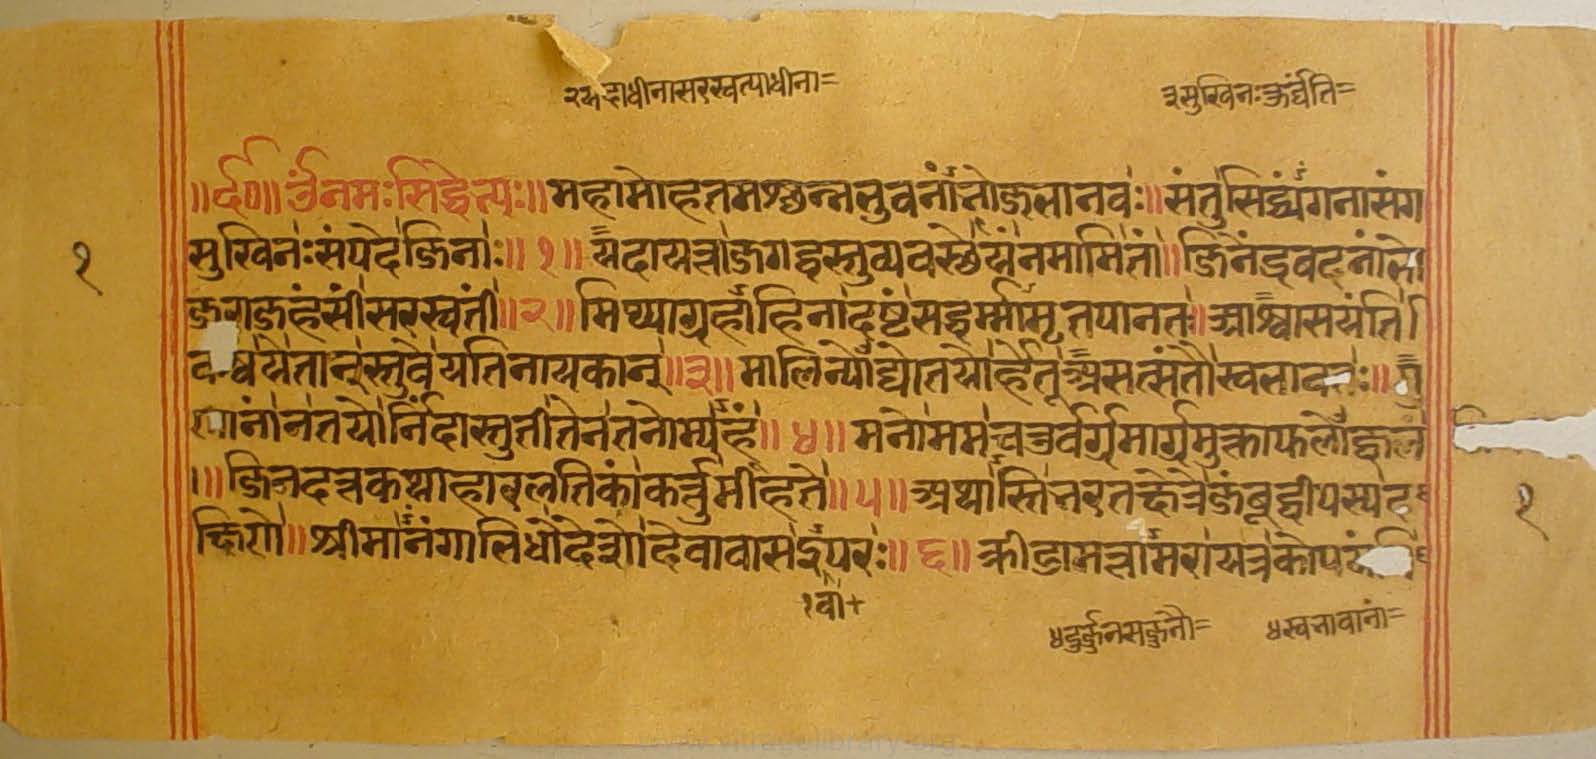 २ यदाधीना सरस्वत्याधीना=
३ सुखिनः
॥र्द०॥ ॐ नमः सिद्धेभ्यः॥ महामोहतमश्छन्नभुवनांभोजभानवः॥ संतु सिद्ध्यंगनासंग
सुखिनः संपदे जिनाः॥ १ ॥ यदायत्ता जगद्वस्तुव्यवस्थेयं नमामि तां॥ जिनेंद्रवदनांभो
जराजहंसीं सरस्वतीं॥ २ ॥ मिथ्याग्रहाहिना दष्टं सद्धर्मामृतपानतः॥ आश्वासयंति
विश्वं ये तान् स्तुवे यतिनायकान्॥ ३ ॥ मालिन्योद्योतयोर्हेतू असत्संतौ स्वभावतः॥ गु
णानां न तयोर्निंदास्तुती तेन तनोम्यहं॥ ४ ॥ मनो मम चतुर्वर्गमार्गमुक्ताफलोज्ज्वले
॥ जिनदत्तकथाहारलतिकां कर्त्तुमीहते॥ ५ ॥ अथास्ति भरतक्षेत्रे जंबूद्वीपस्य द
क्षिणे॥ श्रीमानंगाभिधो देशो देवावास इवापरः॥ ६ ॥ क्रीडामत्तामरा यत्र कोपयंति
१ वा+
४ दुर्जनसज्जनौ=
४ स्वभावानां=
१
१